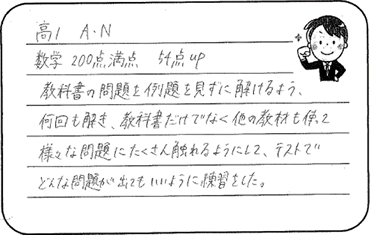 高1 A・N
数学 200点満点 54点up
教科書の問題を例題を見ずに解けるよう、
何回も解き、教科書だけでなく他の教材も使って
様々な問題にたくさん触れるようにして、テストで
どんな問題が出てもいいように練習をした。